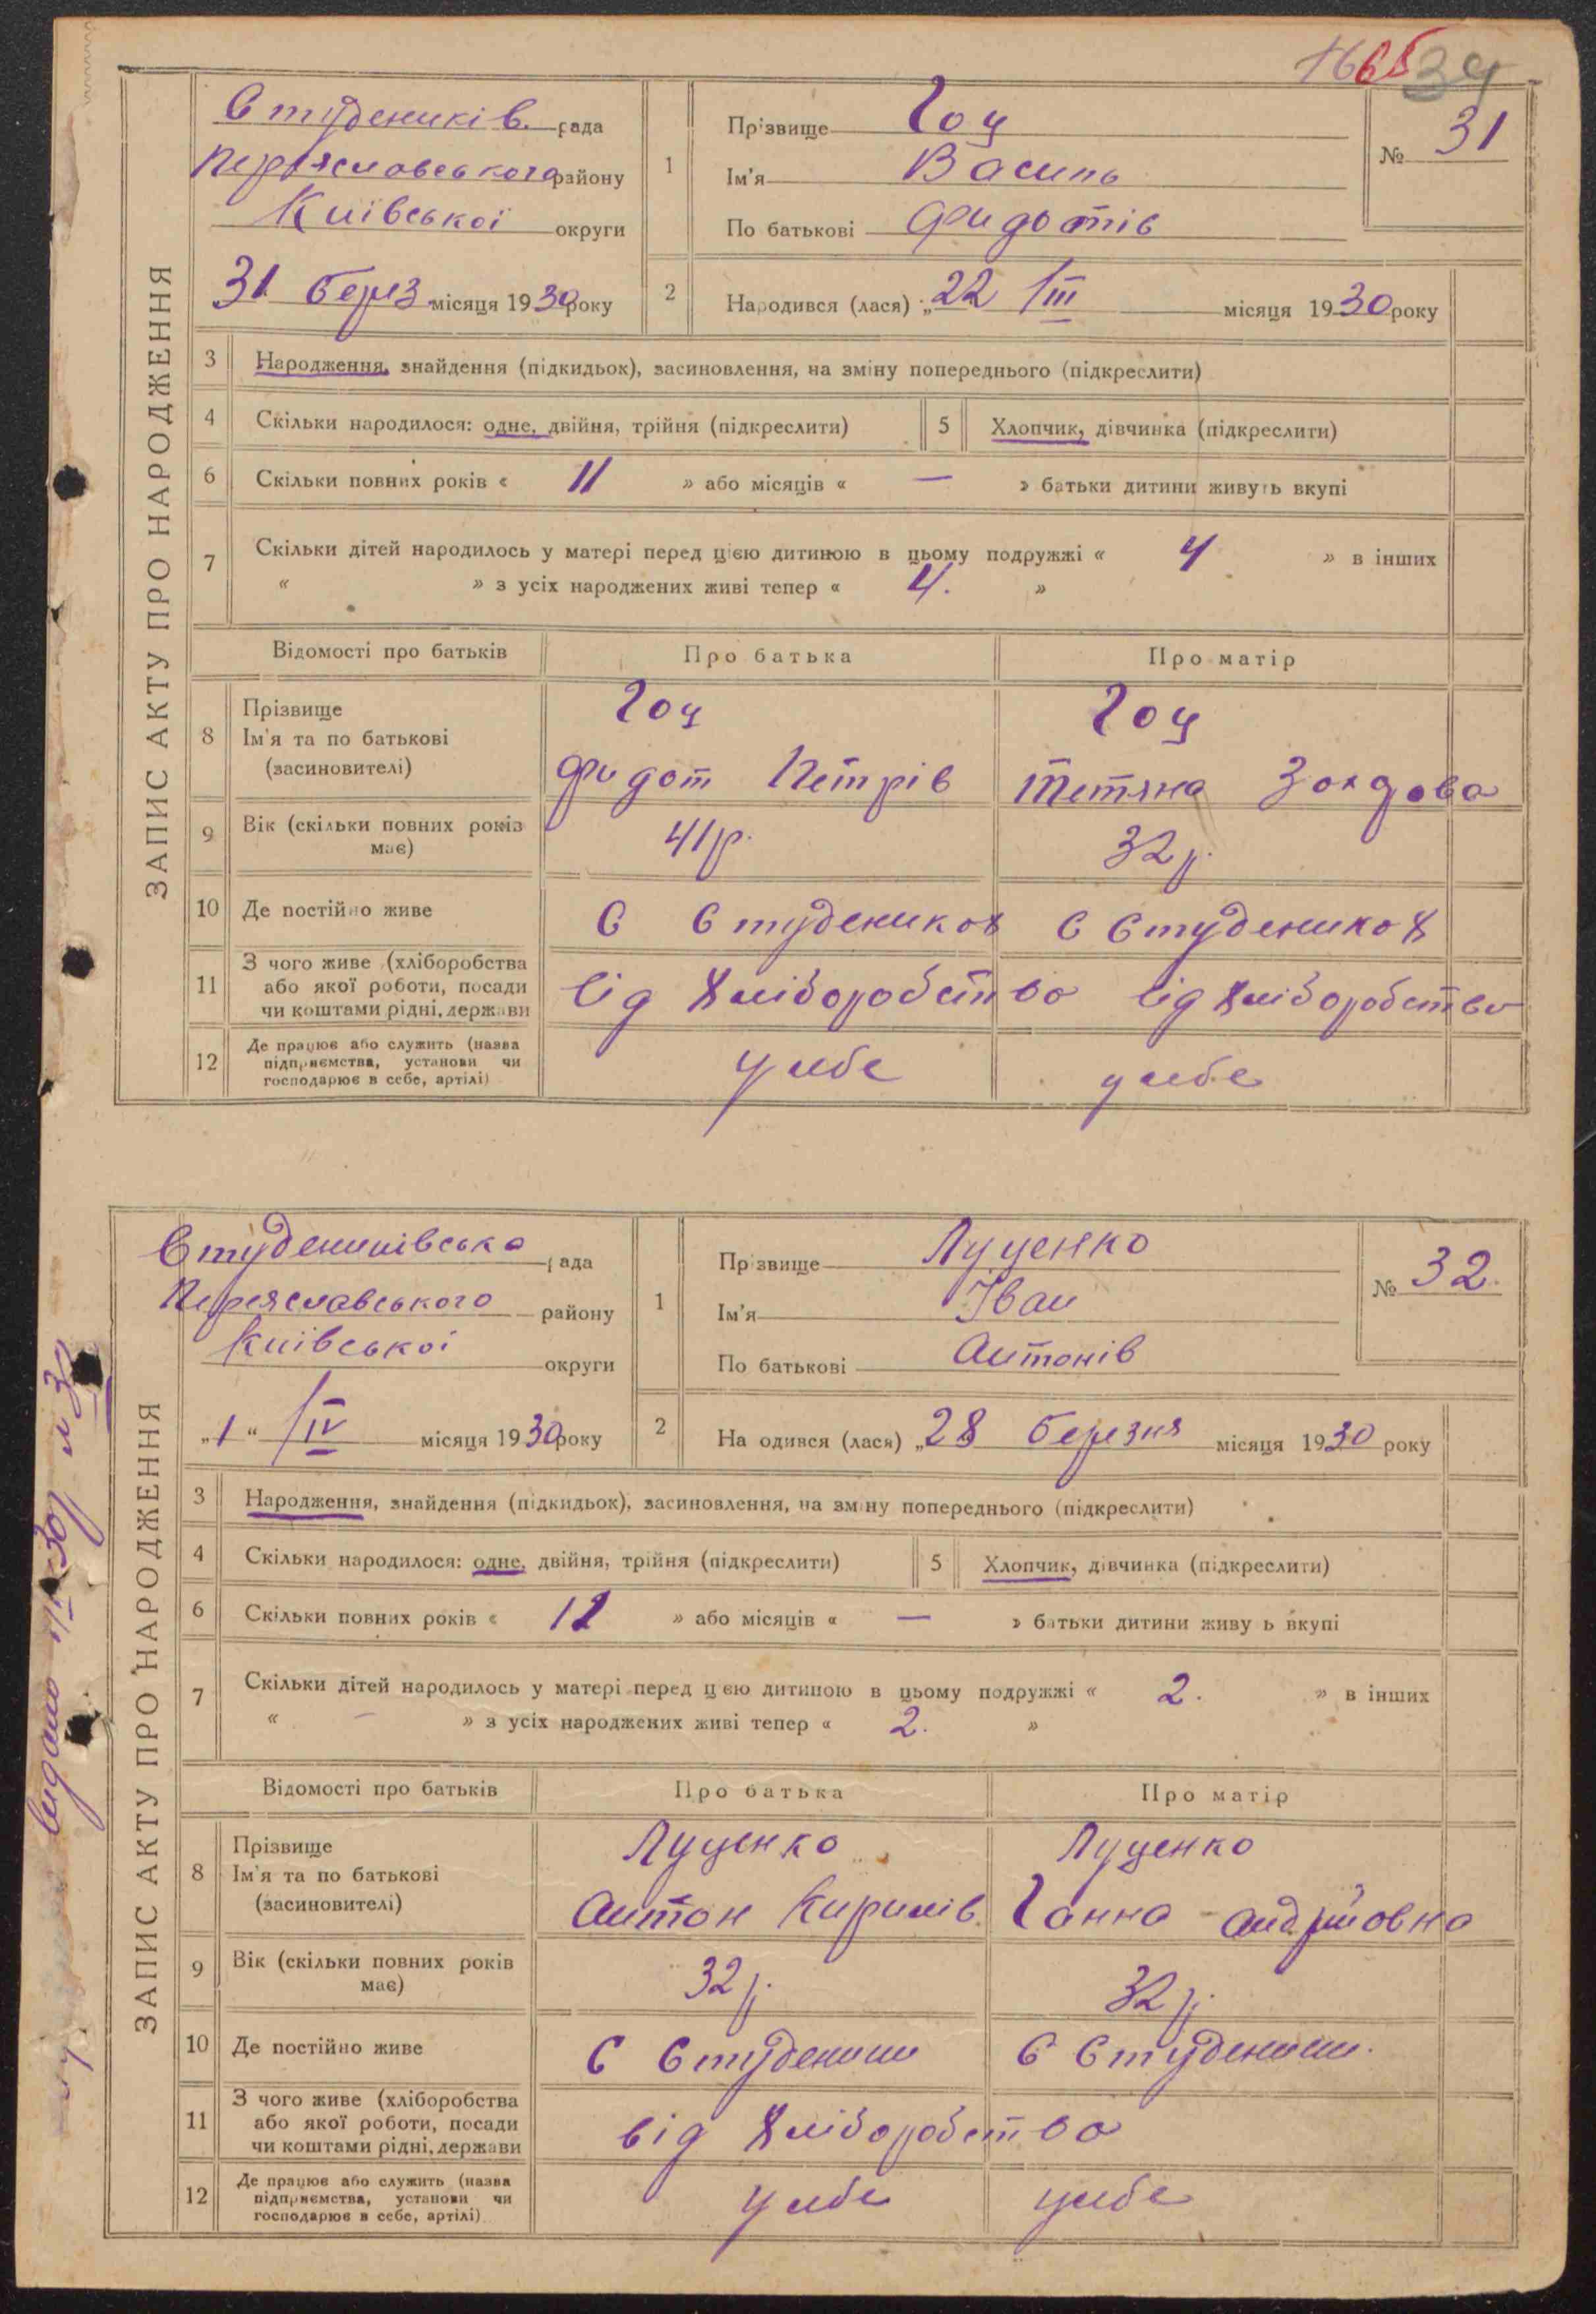 34
ЗАПИС АКТУ ПРО НАРОДЖЕННЯ
Студеників. рада
Переяславського району
Київської округи
31 берез місяця 1930 року
1
Прізвище Гоц
Ім'я Василь
По батькові Фидотів
№ 31
2
Народився (лася) „22 /III місяця 1930 року
3 Народження, знайдення (підкидьок), засиновлення, на зміну попереднього (підкреслити)
4 Скільки народилося: одне, двійня, трійня (підкреслити) 5 Хлопчик, дівчинка (підкреслити)
6 Скільки повних років « 11 » або місяців « — » батьки дитини живуть вкупі
7 Скільки дітей народилось у матері перед цією дитиною в цьому подружжі « 4 » в інших
« » з усіх народжених живі тепер « 4. »
Відомості про батьків Про батька Про матір
8 Прізвище
Ім'я та по батькові
(засиновителі)
Гоц
Фидот Петрів
Гоц
Тетяна
9 Вік (скільки повних років
має)
41р.
32р.
10 Де постійно живе С Студениках С Студениках
11 З чого живе (хліборобства
або якої роботи, посади
чи коштами рідні, держави
від хліборобства від хліборобства
12 Де працює або служить (назва
підприємства, установи чи
господарює в себе, артілі)
у себе у себе
ЗАПИС АКТУ ПРО НАРОДЖЕННЯ
Студениківська рада
Переяславського району
Київської округи
„1“ /IV місяця 1930 року
1
Прізвище Луценко
Ім'я Іван
По батькові Антонів
№ 32.
2
Народився (лася) „28 березня місяця 1930 року
3 Народження, знайдення (підкидьок), засиновлення, на зміну попереднього (підкреслити)
4 Скільки народилося: одне, двійня, трійня (підкреслити) 5 Хлопчик, дівчинка (підкреслити)
6 Скільки повних років « 12 » або місяців « — » батьки дитини живуть вкупі
7 Скільки дітей народилось у матері перед цією дитиною в цьому подружжі « 2. » в інших
« – » з усіх народжених живі тепер « 2. »
Відомості про батьків Про батька Про матір
8 Прізвище
Ім'я та по батькові
(засиновителі)
Луценко
Антон Кирилів
Луценко
Ганна Андрійовна
9 Вік (скільки повних років
має)
32р.
32р.
10 Де постійно живе С Студеники С Студеники.
11 З чого живе (хліборобства
або якої роботи, посади
чи коштами рідні, держави
від хліборобства
12 Де працює або служить (назва
підприємства, установи чи
господарює в себе, артілі)
у себе у себе
видано